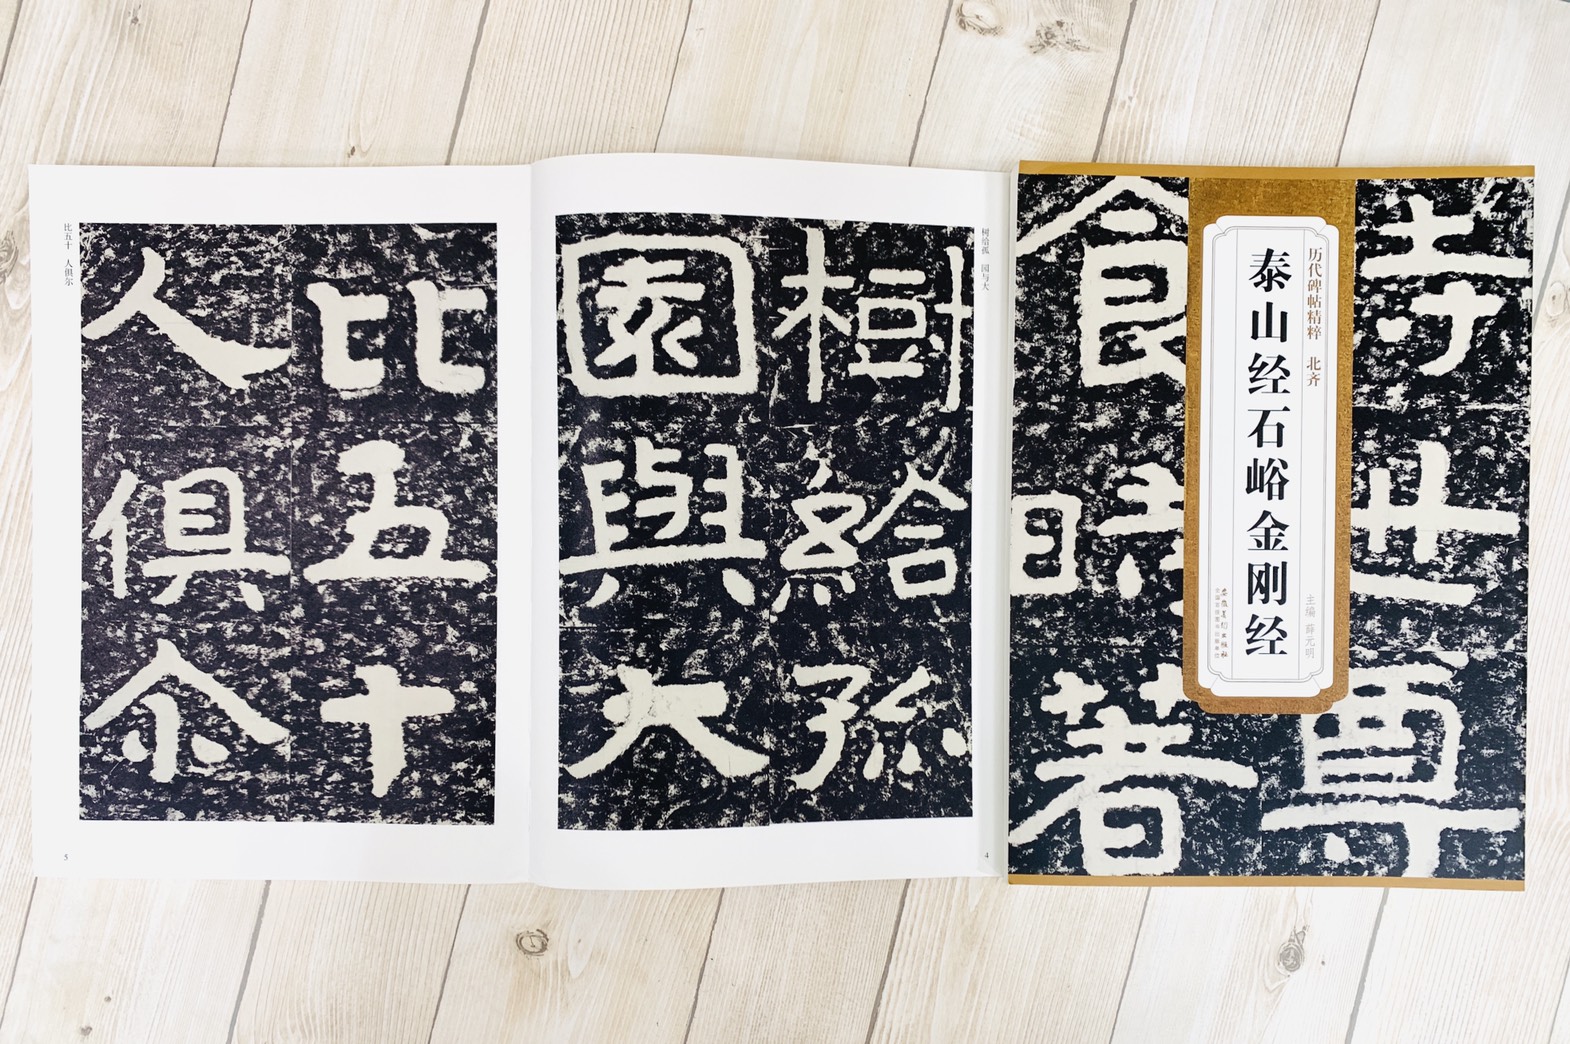 历代碑帖精粹 北齐
泰山经石峪金刚经
主编 薛元明
安徽美术出版社
食
寺
時
世
著
尊
树给孤 园与大
樹給孫
園與大
4
比五十 人俱尔
比五十
人俱尒
5